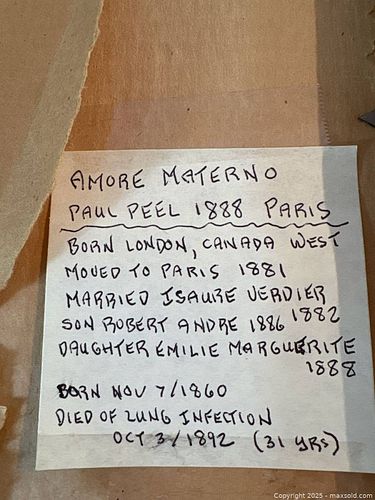 AMORE MATERNO
PAUL PEEL 1888 PARIS
BORN LONDON, CANADA WEST
MOVED TO PARIS 1881
MARRIED ISAURE VERDIER
1882
SON ROBERT ANDRE 1886
DAUGHTER EMILIE MARGUERITE
1888
BORN NOV 7/1860
DIED OF LUNG INFECTION
OCT 3/1892 (31 YRS)
Copyright © 2025 - maxsold.com